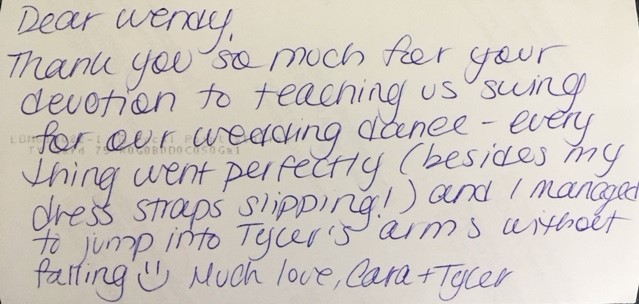 Dear Wendy,
Thank you so much for your
devotion to teaching us swing
for our wedding dance - every
thing went perfectly (besides my
dress straps slipping!) and I managed
to jump into Tyler's arms without
falling Much love, Cara + Tyler